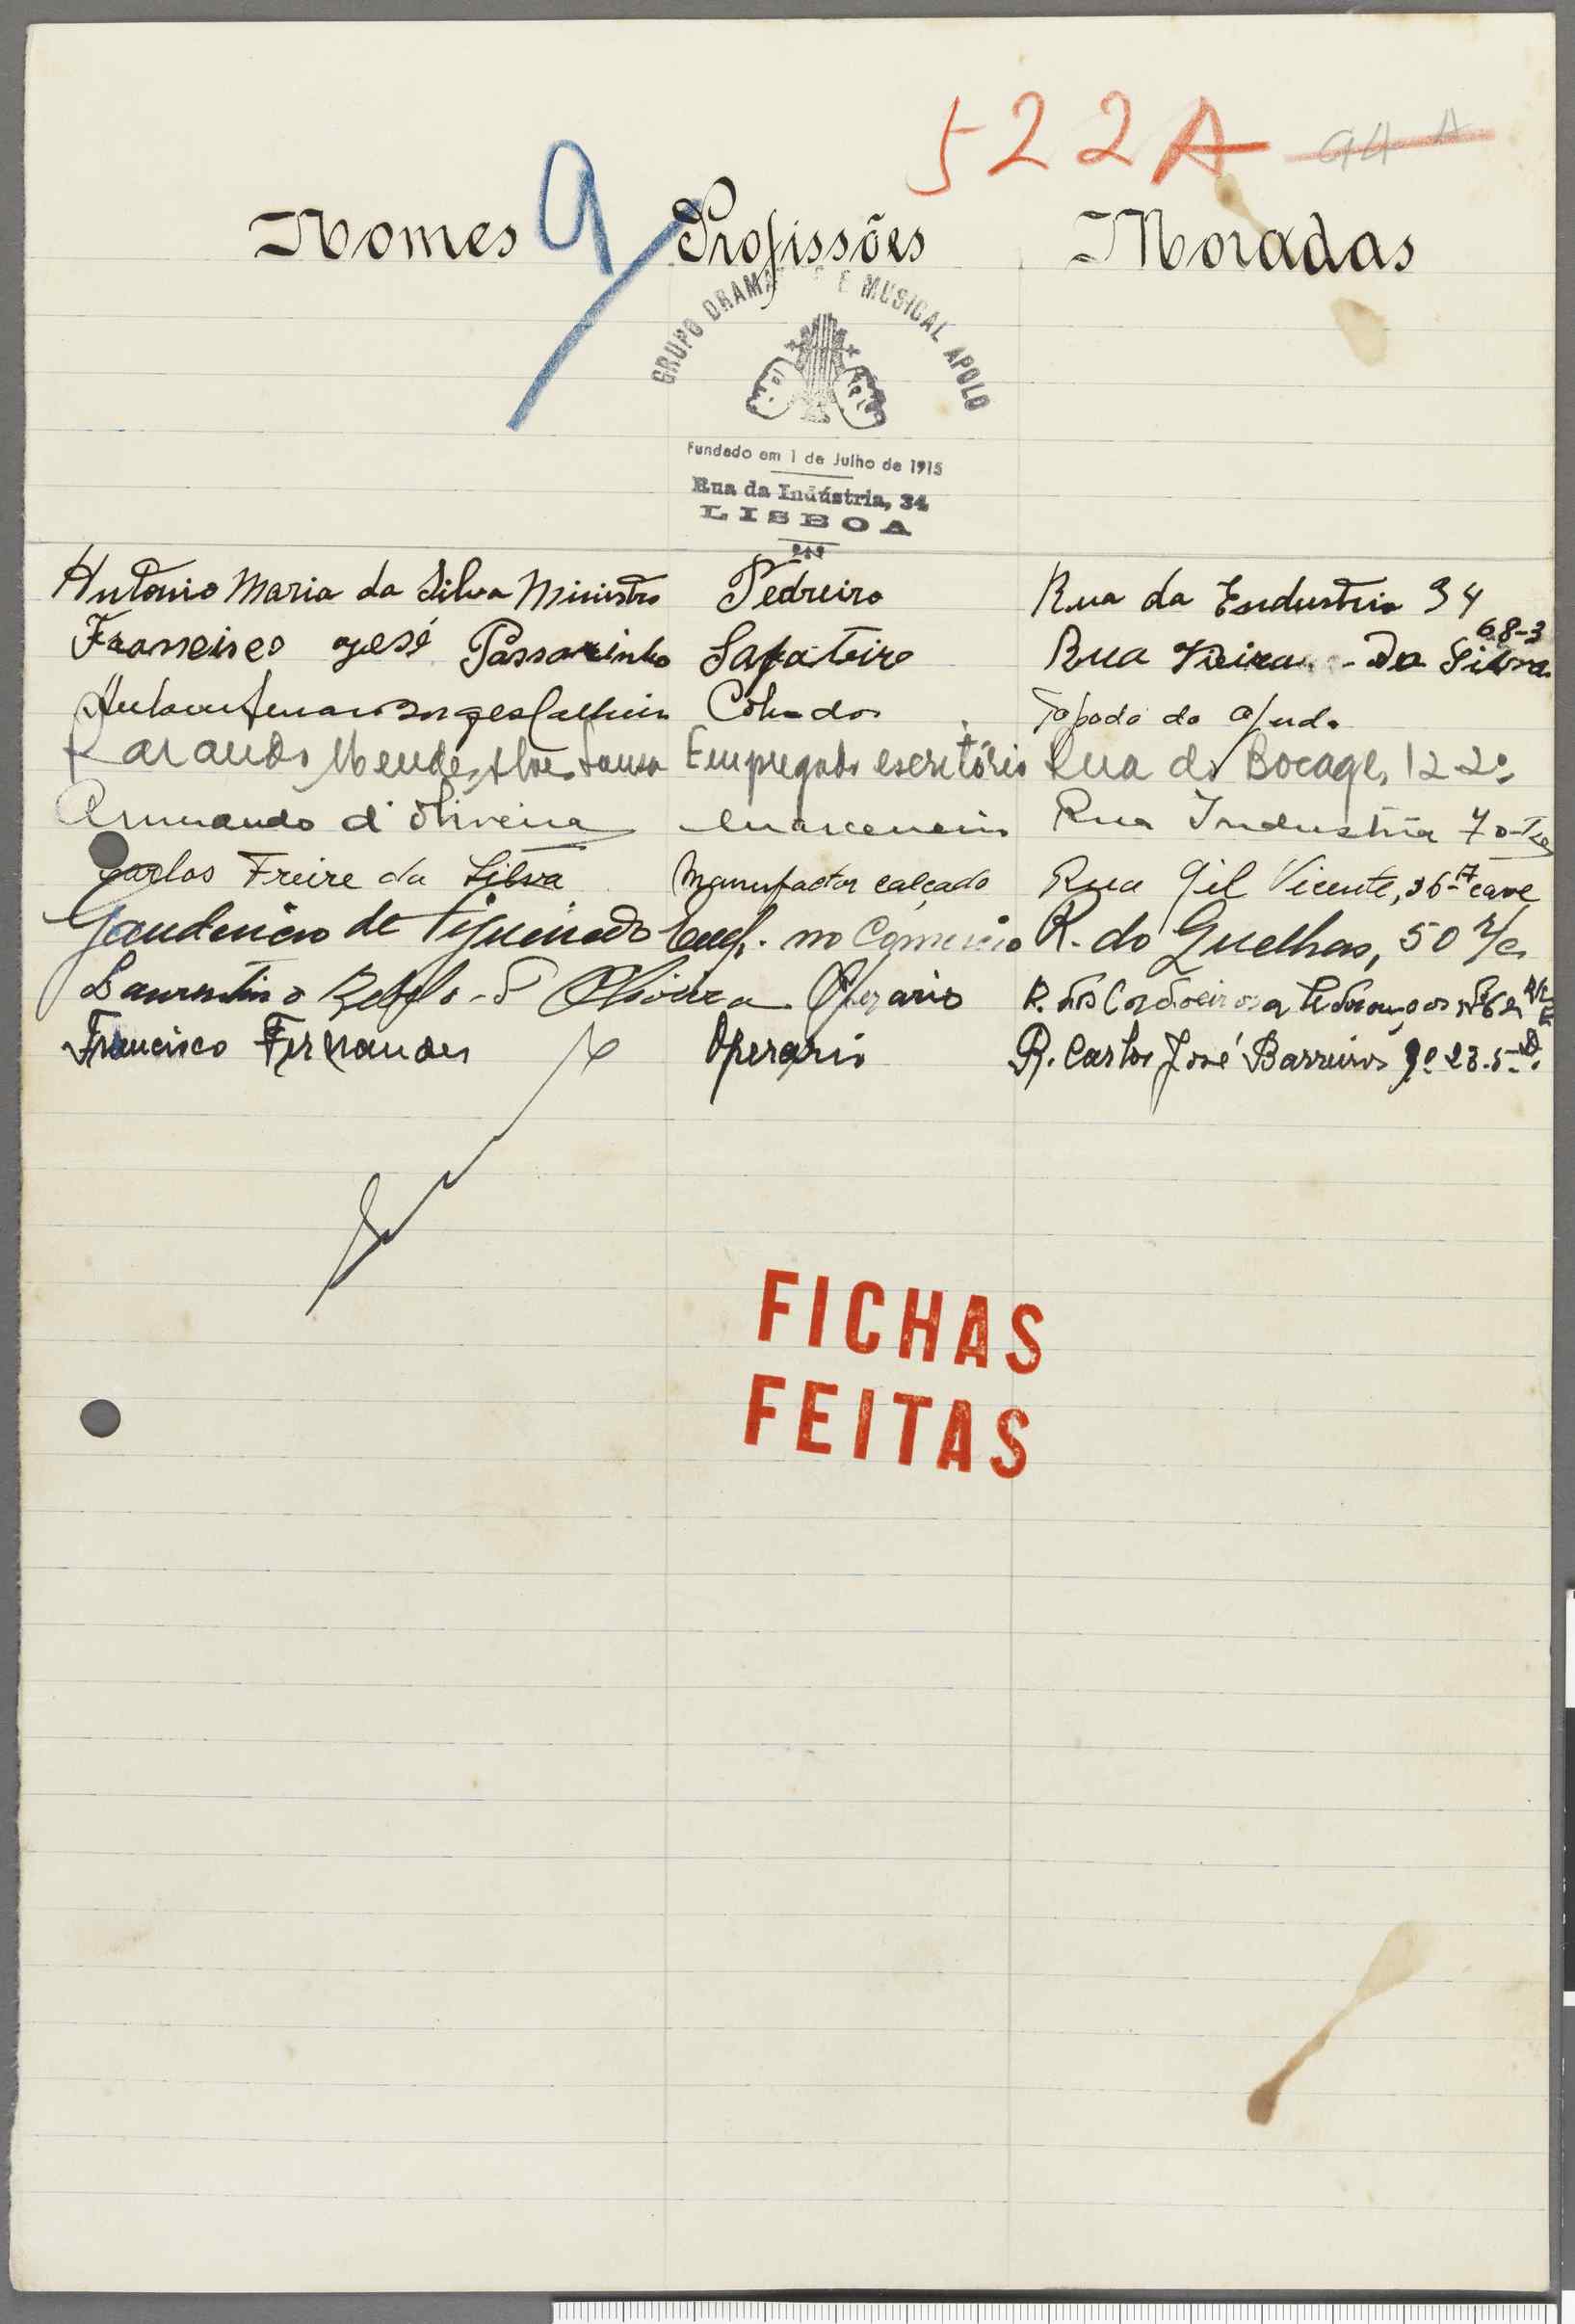 522A 94 A
Nomes 9 Profissões Moradas
GRUPO DRAMA E MUSICAL APOLO
Fundado em 1 de Julho de 1915
Rua da Indústria, 34
LISBOA
Antonio Maria da Silva Ministro Pedreiro Rua da Endustria 34
Francisco José Passarinho Sapateiro Rua Vieira da Silva 68-3
Borges Tapada da Ajuda
Mendes Alves Sousa Empregado escritório Rua do Bocage, 12-2º
Armando d'Oliveira Marceneiro Rua Industria 70
Carlos Freire da Silva Manufactor calçado Rua Gil Vicente, 36-A cave
Gaudencio de Figueiredo Emp. no Comercio R. do Quelhas, 50 r/c
Laurentino Oliveira Operario R. dos Cordoeiros a
Francisco Fernandes Operario R. Carlos José Barreiros 23-5º
FICHAS
FEITAS